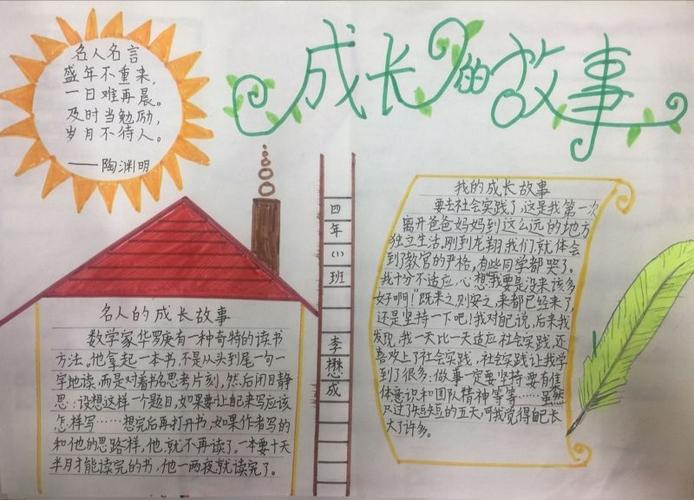 成长的故事
名人名言
盛年不重来，
一日难再晨。
及时当勉励，
岁月不待人。
——陶渊明
名人的成长故事
数学家华罗庚有一种奇特的读书
方法。他拿起一本书不是从头到尾一句一
字地读，而是对着书名思考片刻，然后闭目静
思：设想这样一个题目，如果要让自己来写应该
怎样写……想完后再打开书，如果作者写的
和他的思路样，他就不再读了。一本要十天
半月才能读完的书，他一两夜就读完了。
四年（1）班
李懋成
我的成长故事
要去社会实践了，这是我第一次
离开爸爸妈妈到这么远的地方
独立生活，刚到龙翔我们就体会
到了教官的严格，有些同学都哭了。
我十分不适应，心想：我要是没来该多
好啊！"既来之，则安之，来都已经来了，
还是坚持一下吧！我对自己说，后来我
发现，我一天比一天适应社会实践，还
喜欢上了社会实践，社会实践让我学
到了很多：做事一定要坚持，要有集
体意识和团队精神等等……虽然
只过了短短的五天，可我觉得自己长
大了许多。